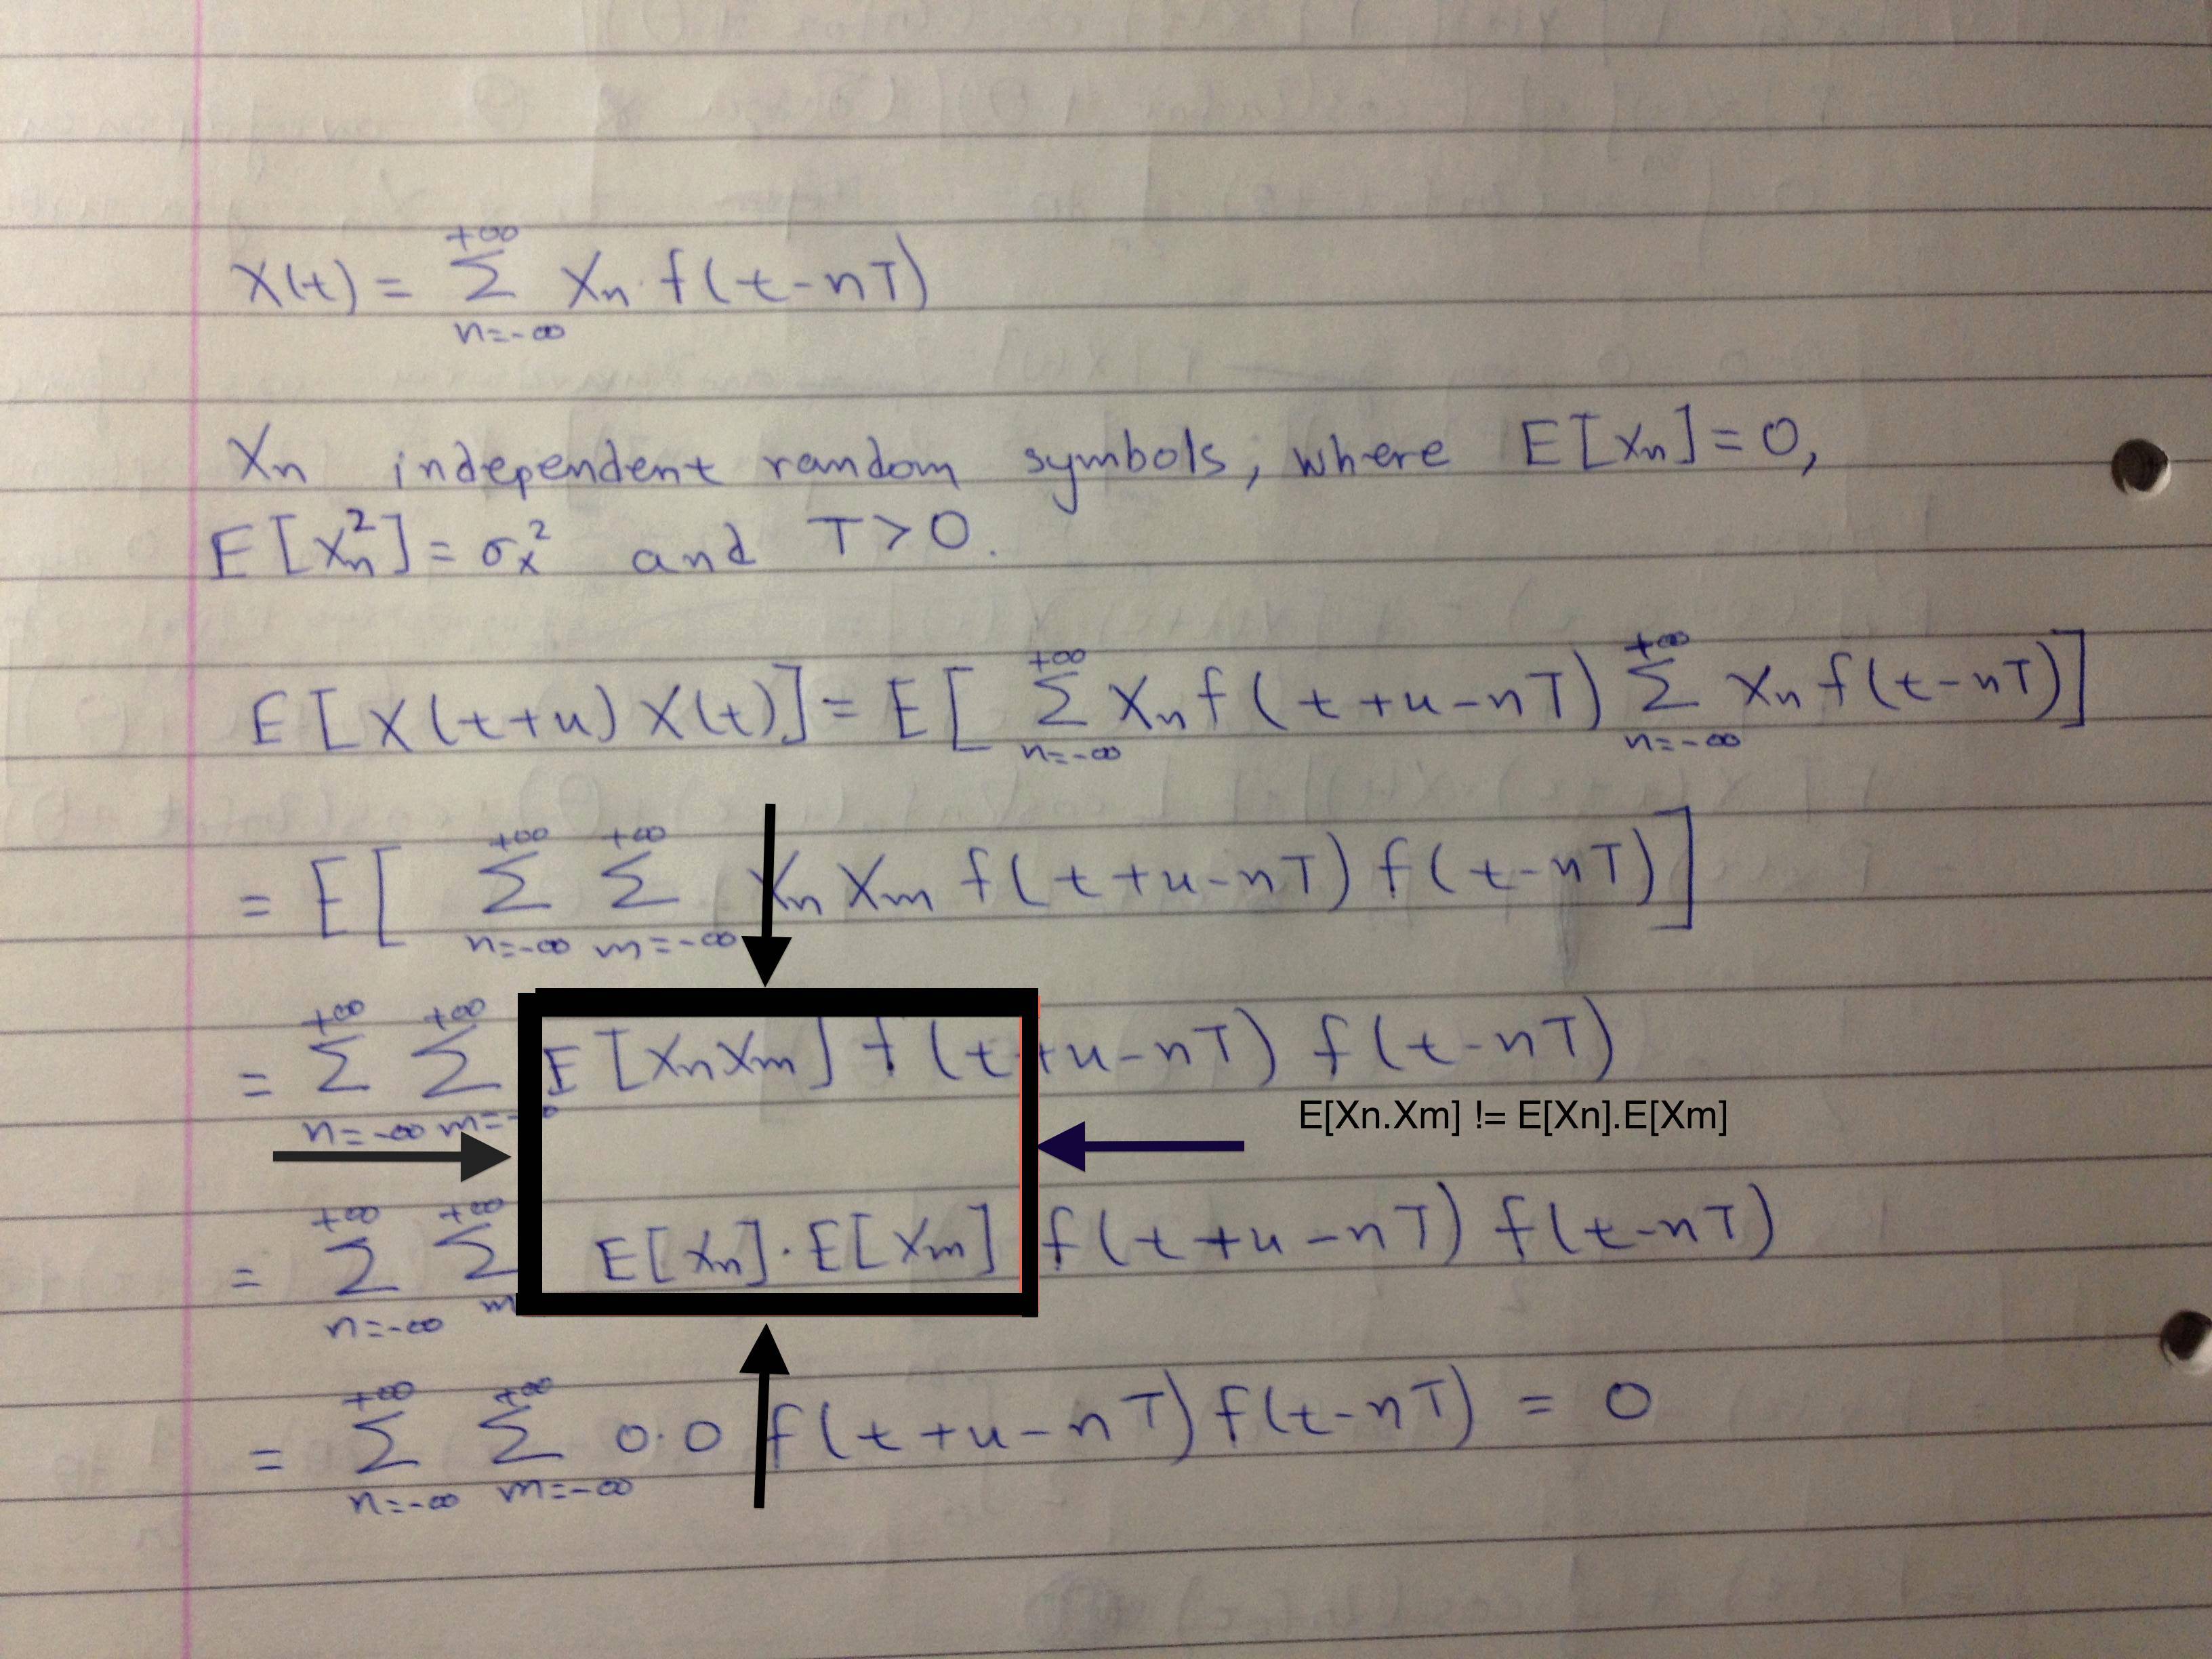 X(t) = +∞ Σ n=-∞ Xn · f(t-nT)
Xn independent random symbols, where E[Xn]=0,
E[Xn²] = σx² and T>0.
E[X(t+u) X(t)] = E[ +∞ Σ n=-∞ Xn f(t+u-nT) +∞ Σ n=-∞ Xn f(t-nT)]
= E[ +∞ Σ n=-∞ +∞ Σ m=-∞ Xn Xm f(t+u-nT) f(t-nT)]
= +∞ Σ n=-∞ +∞ Σ m=-∞ E[XnXm] f(t+u-nT) f(t-nT)
E[Xn.Xm] != E[Xn].E[Xm]
= +∞ Σ n=-∞ +∞ Σ m E[Xn]·E[Xm] f(t+u-nT) f(t-nT)
= +∞ Σ n=-∞ +∞ Σ m=-∞ 0·0 f(t+u-nT) f(t-nT) = 0